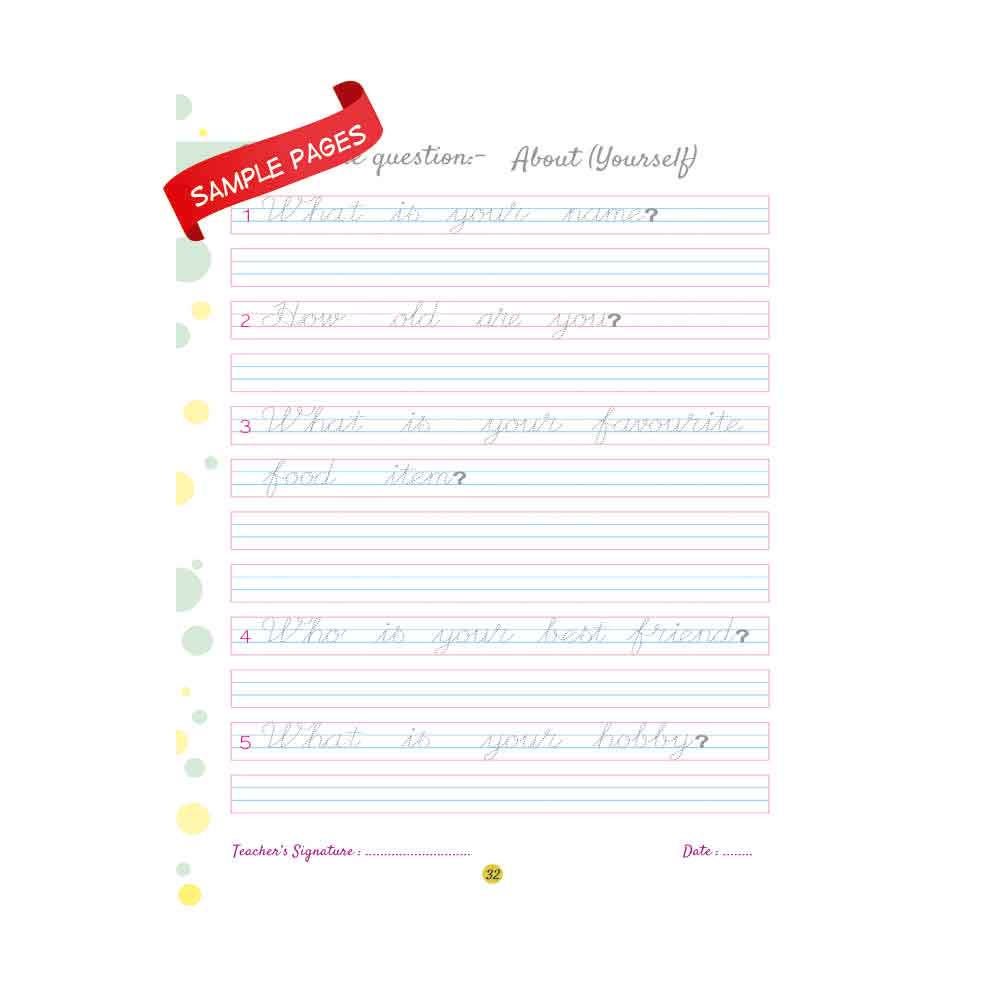 SAMPLE PAGES
question:- About (Yourself)
1 What is your name?
2 How old are you?
3 What is your favourite
food item?
4 Who is your best friend?
5 What is your hobby?
Teacher's Signature : ............................ Date : ........
32